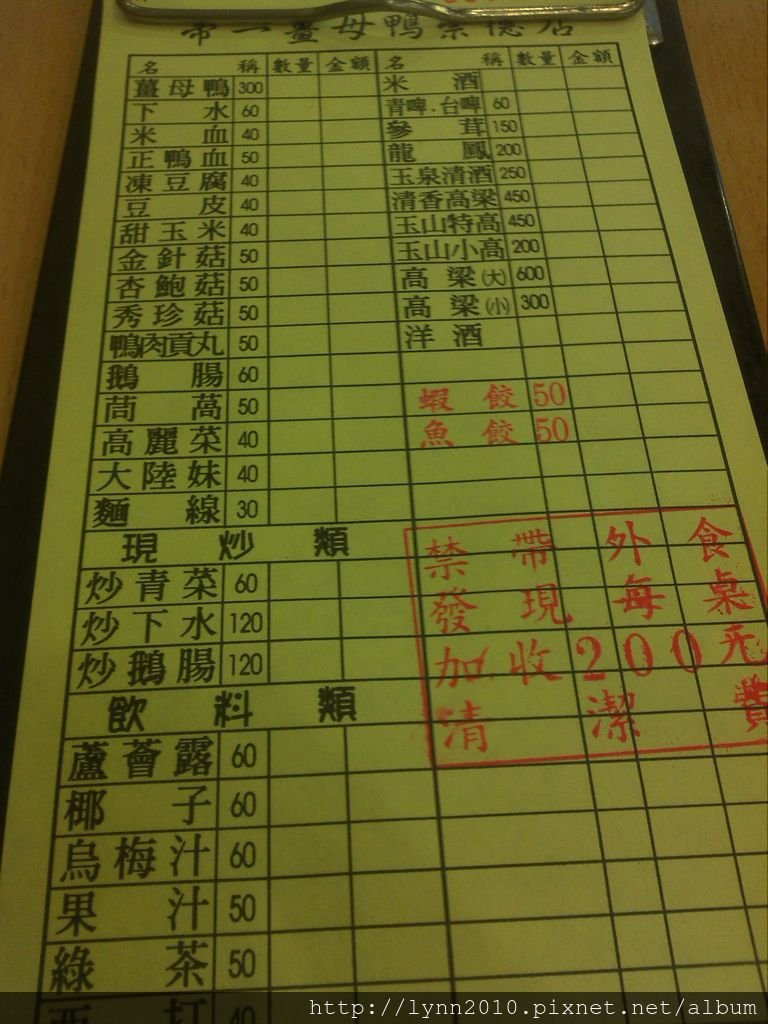 帝一薑母鴨崇德店
名 稱 數量 金額 名 稱 數量 金額
薑母鴨 300 米酒
下水 60 青啤.台啤 60
米血 40 參茸 150
正鴨血 50 龍鳳 200
凍豆腐 40 玉泉清酒 250
豆皮 40 清香高梁 450
甜玉米 40 玉山特高 450
金針菇 50 玉山小高 200
杏鮑菇 50 高梁(大) 600
秀珍菇 50 高梁(小) 300
鴨肉貢丸 50 洋酒
鵝腸 60
茼萵 50 蝦餃 50
高麗菜 40 魚餃 50
大陸妹 40
麵線 30
現炒類
炒青菜 60
炒下水 120
炒鵝腸 120
飲料類
蘆薈露 60
椰子 60
烏梅汁 60
果汁 50
綠茶 50
西打 40
禁帶外食
發現每桌
加收200元
清潔費
http://lynn2010.pixnet.net/album